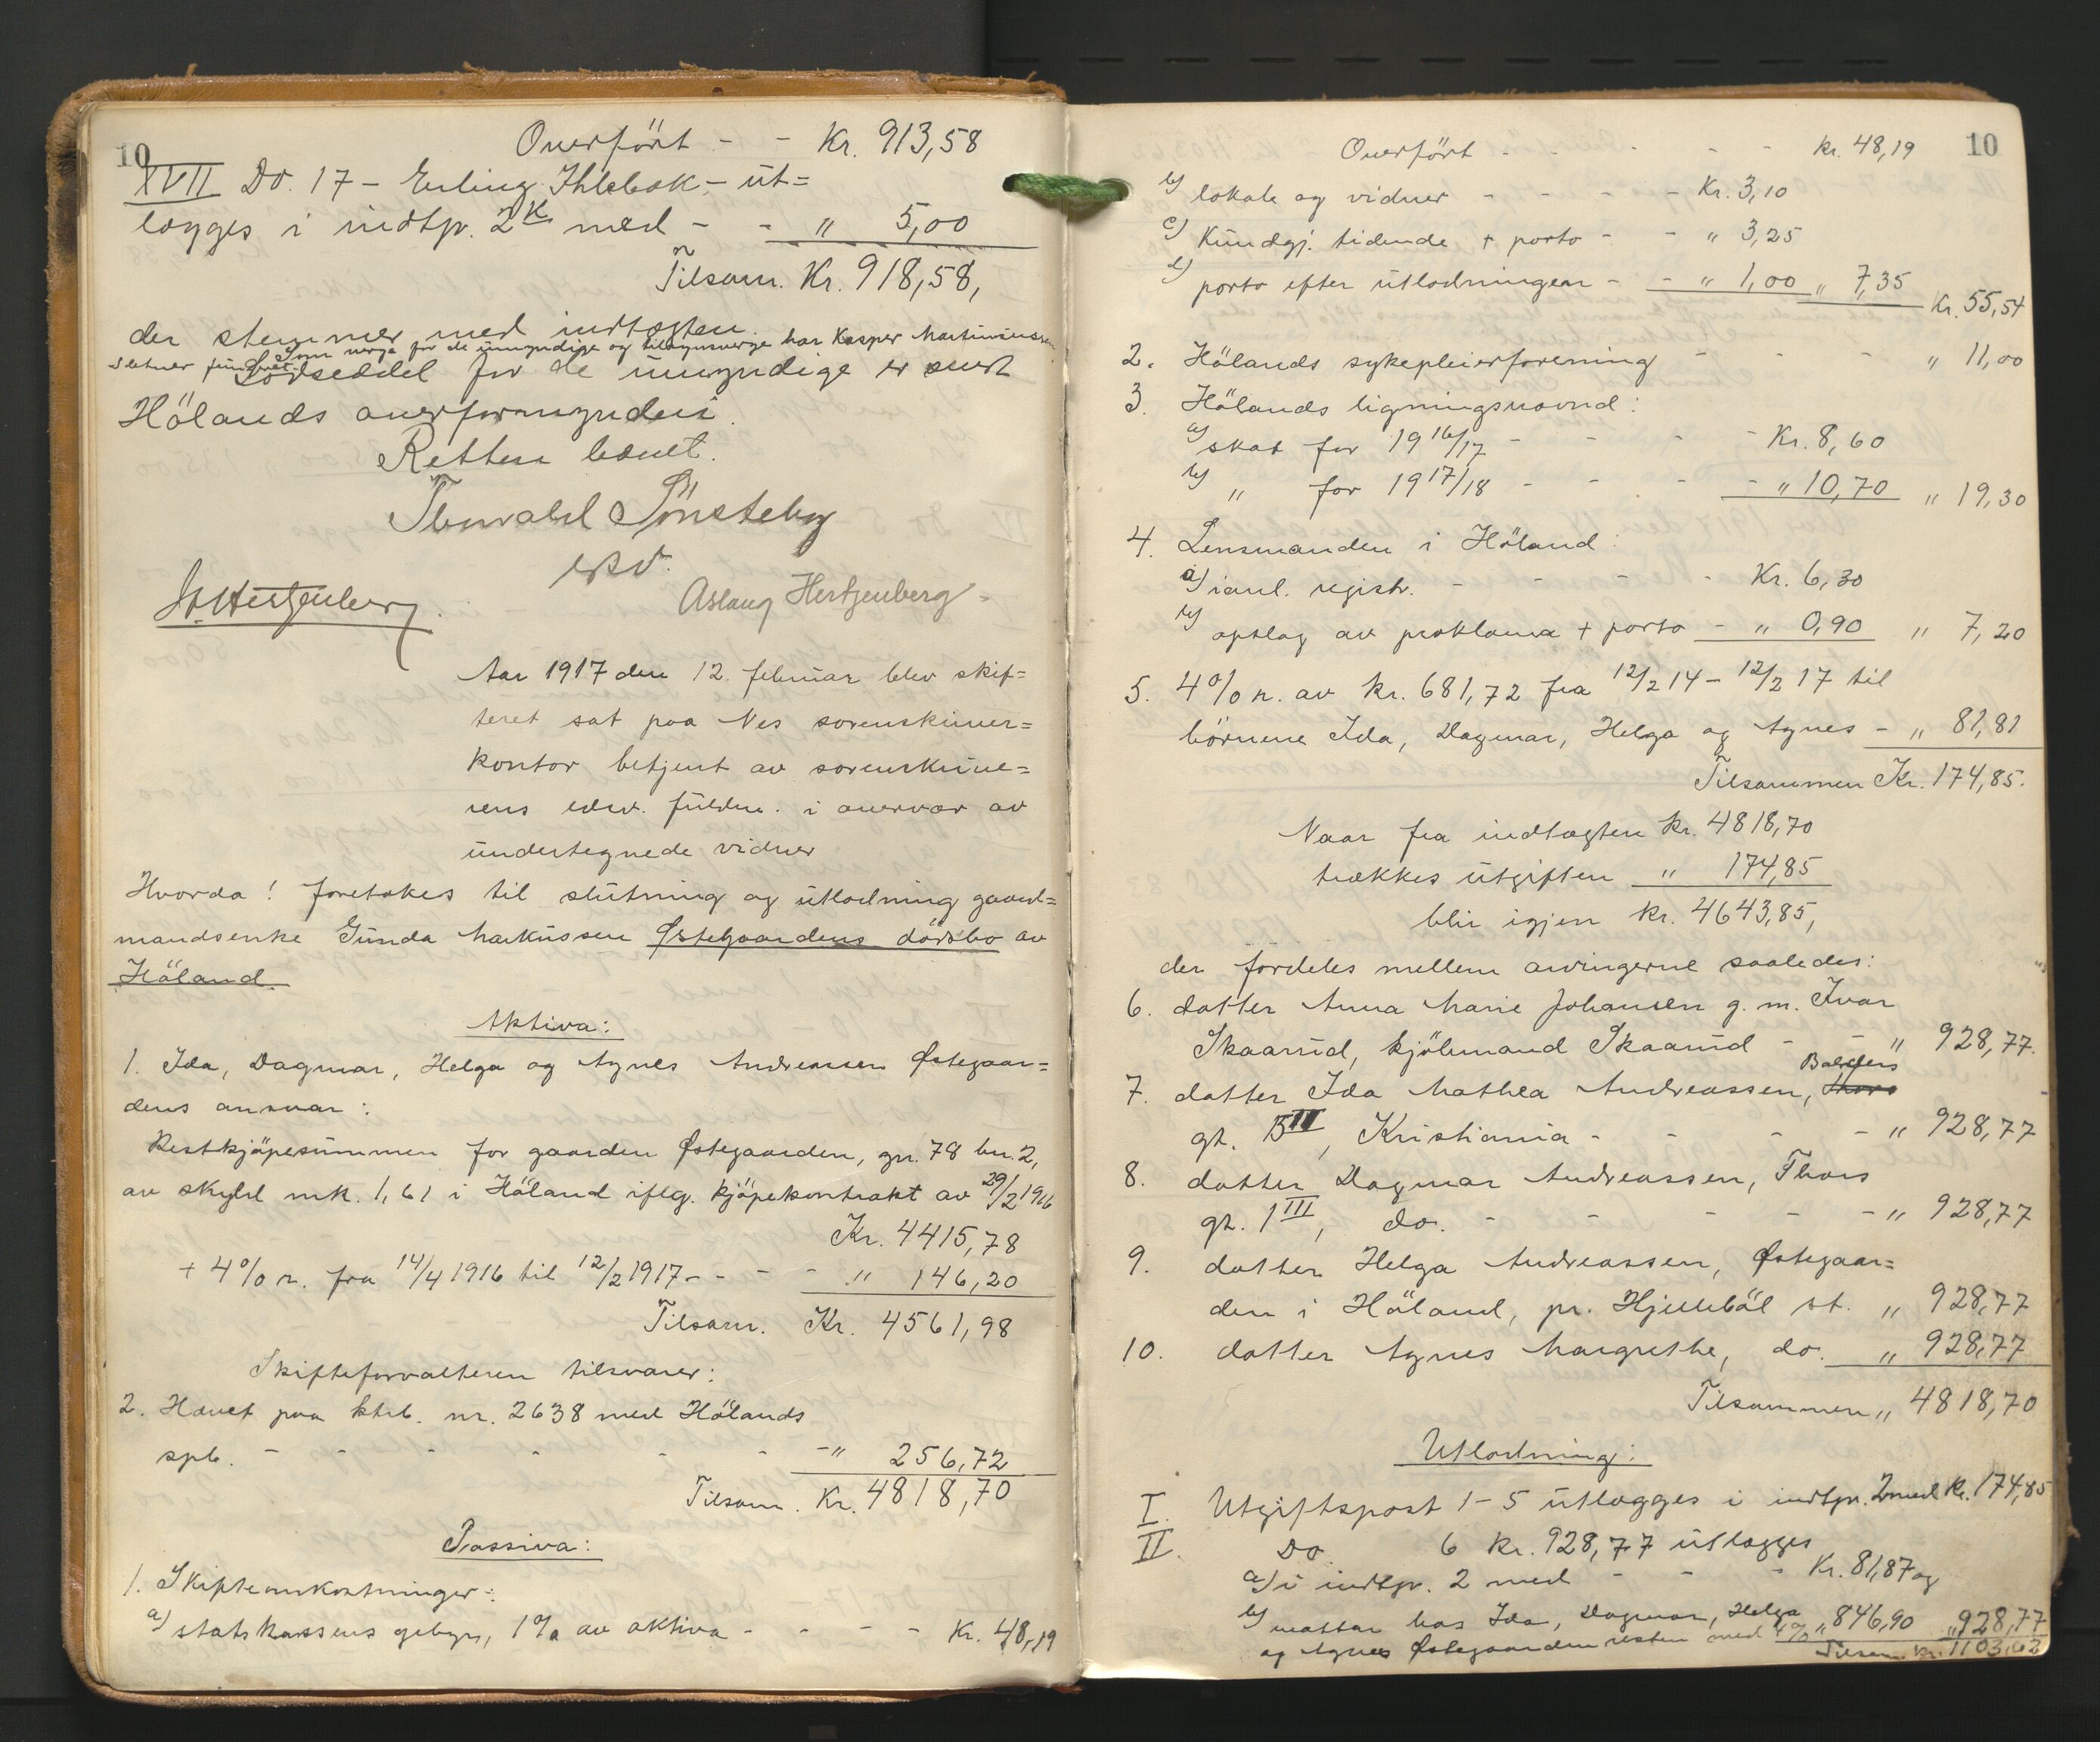 10
Overført - - Kr. 913,58
XVII Do. 17 - Erling Ihlebæk - ut=
lægges i indtp. 2 K med - - " 5,00
Tilsam. Kr. 918,58,
der stemmer med indtægten.
Som verge for de umyndige og tilsynsverge har Kasper Martiniussen
Sætner fungeret.
Lodseddel for de umyndige er sendt
Hölands overformynderi.
Retten hævet.
Thorvald Tönsteby
esv.
Aslaug Hertzenberg
Hertzenberg
Aar 1917 den 12. februar blev skif=
teret sat paa Nes sorenskriver=
kontor betjent av sorenskrive=
rens edsv. fuldm. i overvær av
undertegnede vidner
Hvorda! foretokes til slutning og utlodning gaard=
mandsenke Gunda Markussen Østegaardens dödsbo av
Höland.
Aktiva:
1. Ida, Dagmar, Helga og Agnes Andreassen Østegaar=
dens ansvar:
Restkjøpesummen for gaarden Østegaarden, gn. 78 bn. 2,
av skyld mk. 1,61 i Höland iflg. kjöpekontrakt av 29/2 1916
Kr. 4415,78
+ 4% r. fra 14/4 1916 til 12/2 1917 - - - - " 146,20
Tilsam. Kr. 4561,98
Skifteforvalteren tilsvarer:
2. Hævet paa ktrb. nr. 2638 med Hölands
spb. - - - - - - " 256,72
Tilsam. Kr. 4818,70
Passiva:
1. Skifteomkostninger:
a) statskassens gebyr, 1% av aktiva - - - - Kr. 48,19
10
Overført - - - - - kr. 48,19
b) lokale og vidner - - - - Kr. 3,10
c) Kundgj. tidende + porto - - " 3,25
d) porto efter utlodningen - - " 1,00 " 7,35 Kr. 55,54
2. Hölands sykepleierforening - - - " 11,00
3. Hölands ligningsnævnd:
a) skat for 1916/17 - - - - Kr. 8,60
b) " for 1917/18 - - - - " 10,70 " 19,30
4. Lensmanden i Höland:
a) ianl. registr. - - - - Kr. 6,30
b) opslag av proklama + porto - " 0,90 " 7,20
5. 4% r. av kr. 681,72 fra 12/2 14 - 12/2 17 til
börnene Ida, Dagmar, Helga og Agnes - " 81,81
Tilsammen Kr. 174,85.
Naar fra indtægten Kr. 4818,70
trækkes utgiften " 174,85
blir igjen kr. 4643,85,
der fordeles mellem arvingerne saaledes:
6. datter Anna Marie Johansen g. m. Ivar
Skaarud, kjölemand Skaarud - - " 928,77.
7. datter Ida Mathea Andreassen, Thors Balders
gt. 15 III, Kristiania - - - - " 928,77
8. datter Dagmar Andreassen, Thors
gt. 1 III, do. - - - - - " 928,77
9. datter Helga Andreassen, Østegaar=
den i Höland, pr. Hjellebøl st. " 928,77
10. datter Agnes Margrethe, do. " 928,77
Tilsammen " 4818,70
Utlodning:
I. Utgiftspost 1 - 5 utlægges i indtp. 2 med Kr. 174,85
II. Do 6 Kr. 928,77 utlægges
a) i indtp. 2 med - - - Kr. 81,87 og
b) mottar hos Ida, Dagmar, Helga
og Agnes Østegaarden resten med 4% " 846,90 " 928,77
Tilsam. Kr. 1103,62